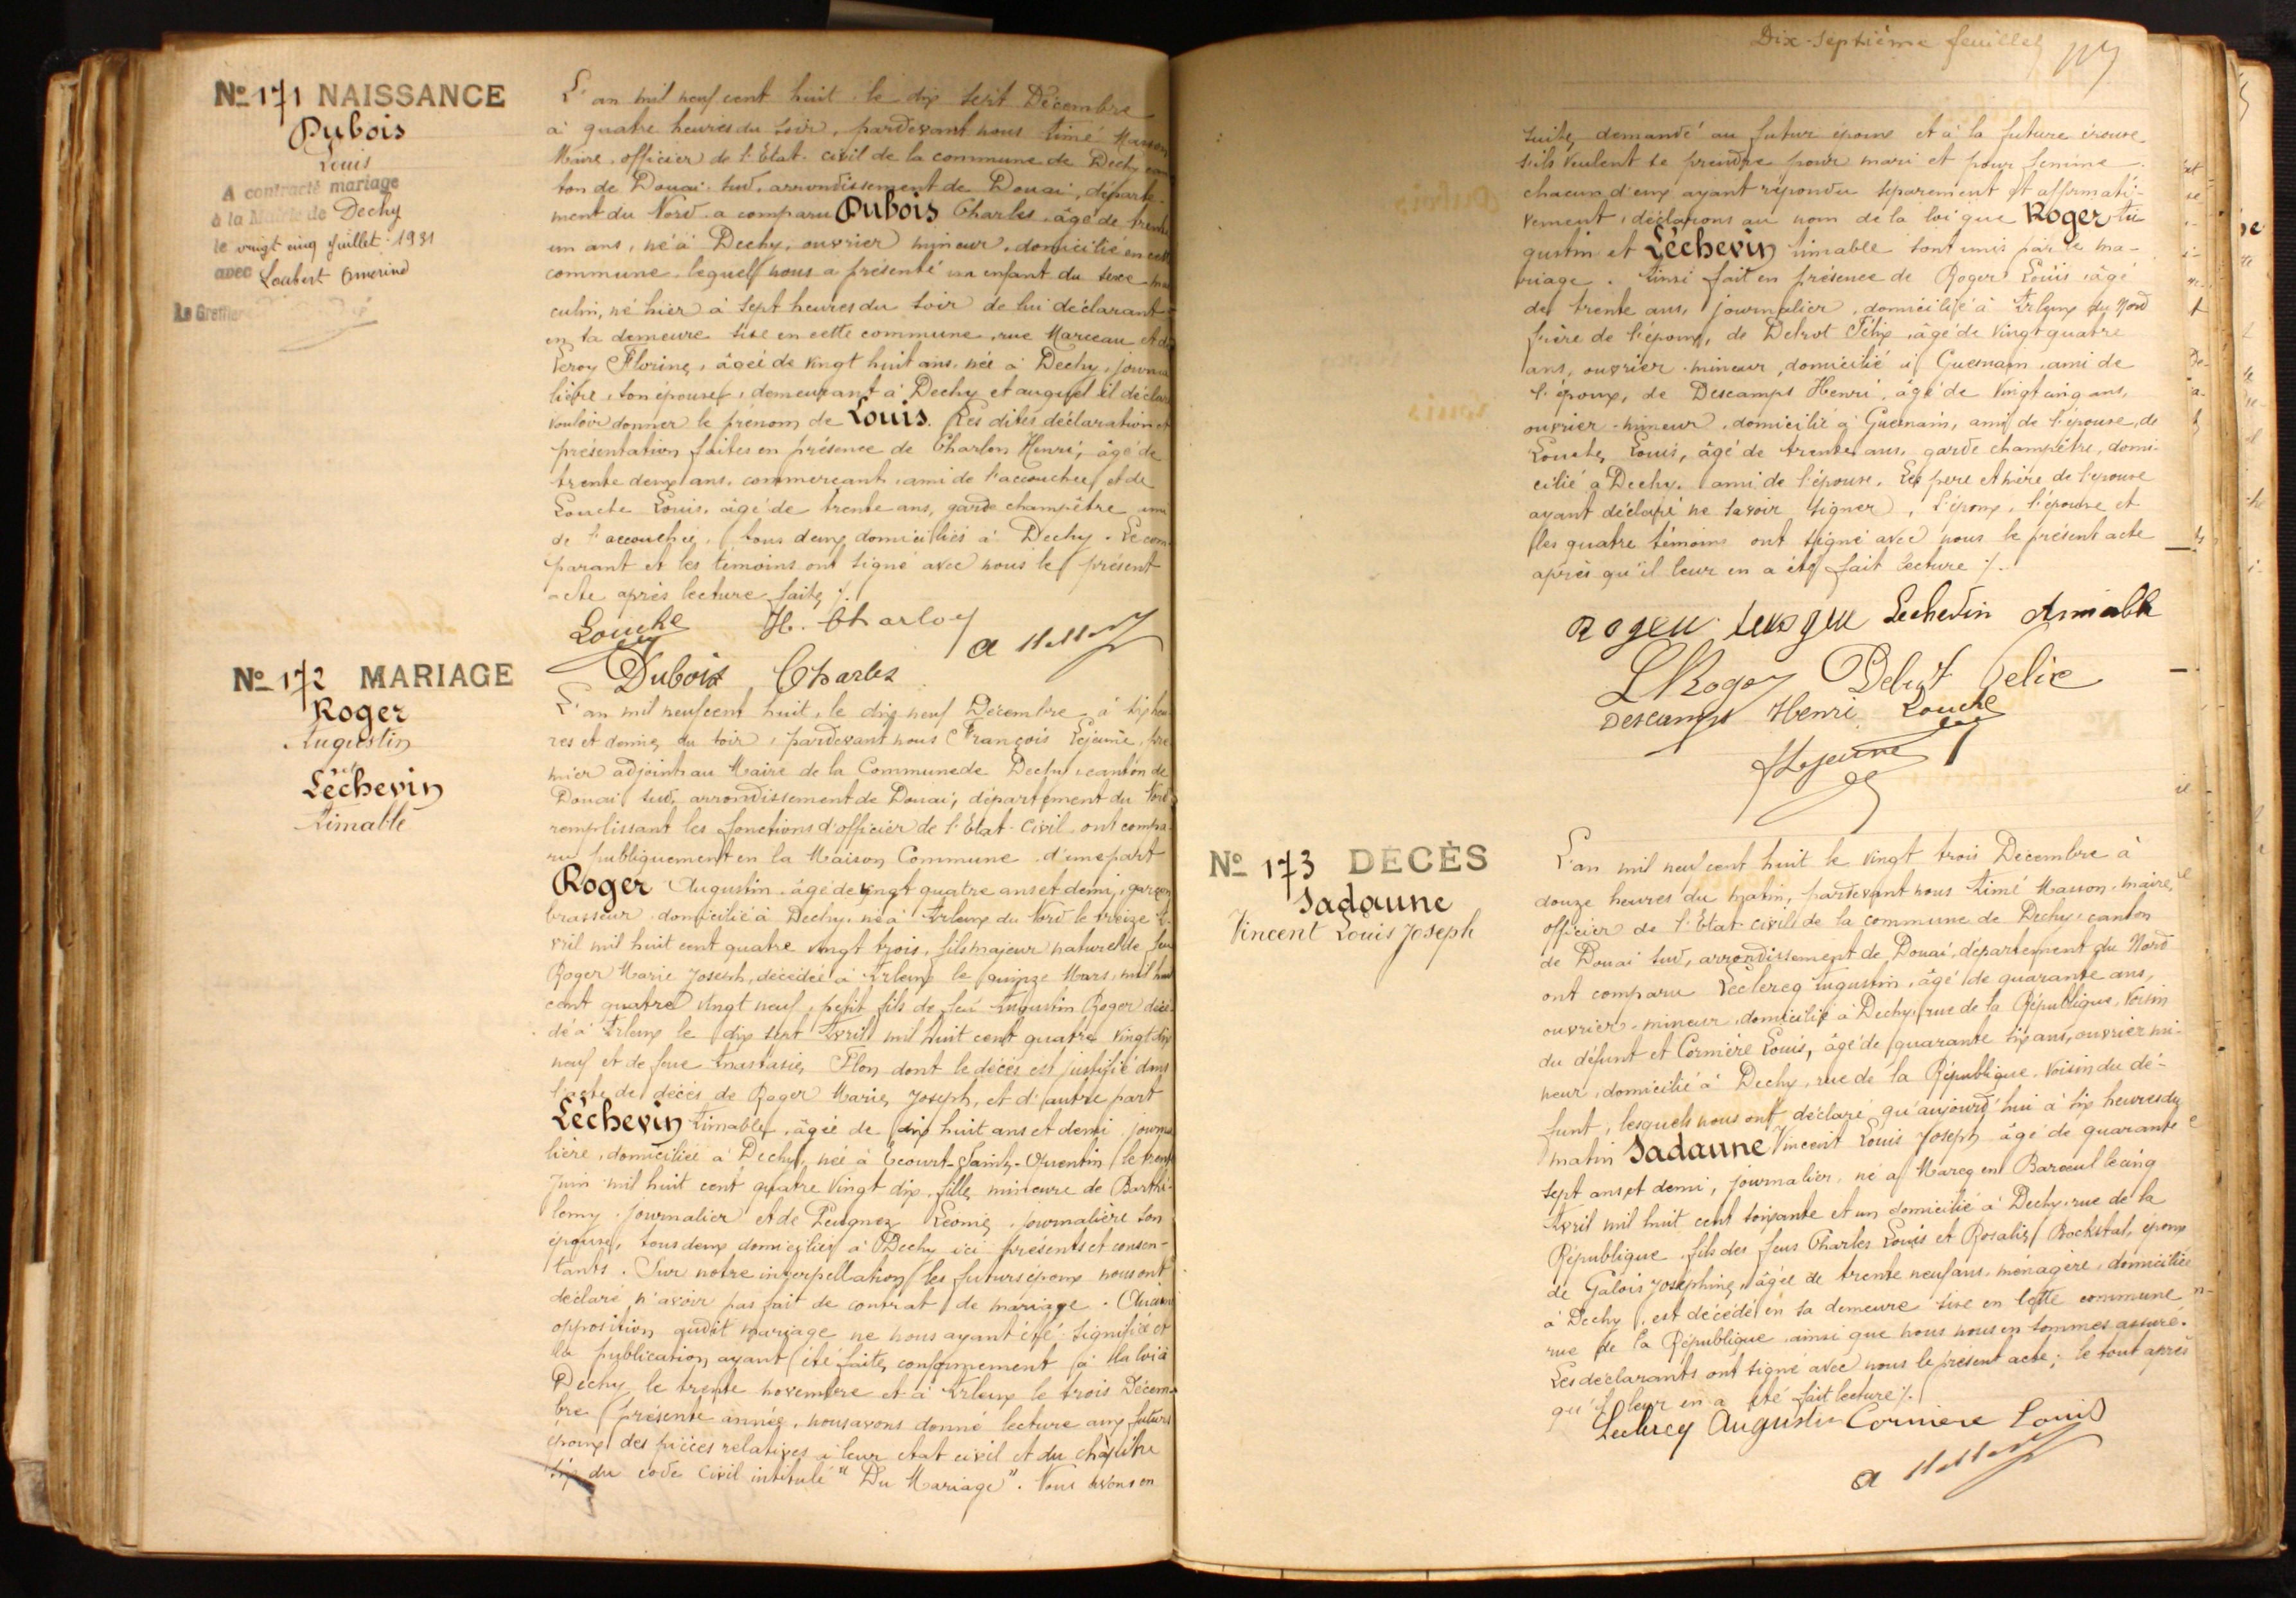 No 171 NAISSANCE
Dubois
Louis
A contracté mariage
à la Mairie de Dechy
le vingt cinq Juillet 1931
avec Loubert Omérine
Le Greffier
L'an mil neuf cent huit le dix sept Décembre
à quatre heures du soir, pardevant nous Aimé Masson
Maire, officier de l'Etat civil de la commune de Dechy can
ton de Douai Sud, arrondissement de Douai, départe-
ment du Nord a comparu Dubois Charles, âgé de trente
un ans, né à Dechy, ouvrier mineur, domicilié en cette
commune, lequel nous a présenté un enfant du sexe mas
culin, né hier à sept heures du soir de lui déclarant
en sa demeure sise en cette commune, rue Marceau et de
Leroy Florine, âgée de vingt huit ans, née à Dechy, journa
lière, son épouse, demeurant à Dechy et auquel il déclare
vouloir donner le prénom de Louis. Les dites déclaration et
présentation faites en présence de Charlon Henri, âgé de
trente deux ans, commerçant, ami de l'accouchée et de
Louche Louis, âgé de trente ans, garde champêtre ami
de l'accouchée, tous deux domiciliés à Dechy. Le com-
parant et les témoins ont signé avec nous le présent
acte après lecture faite ./.
Louche H. Charlon
a Masson
Dubois Charles
No 172 MARIAGE
Roger
Augustin
et
Léchevin
Aimable
L'an mil neuf cent huit, le dix neuf Décembre à six heu
res et demie du soir, pardevant nous François Lejeune, pre
mier adjoint au Maire de la Commune de Dechy, canton de
Douai Sud, arrondissement de Douai, département du Nord
remplissant les fonctions d'officier de l'Etat-Civil, ont compa-
ru publiquement en la Maison Commune, d'une part
Roger Augustin, âgé de vingt quatre ans et demi, garçon
brasseur, domicilié à Dechy, né à Arleux du Nord le treize A-
vril mil huit cent quatre vingt trois, fils majeur naturel de feue
Roger Marie Joseph, décédée à Arleux le quinze Mars, mil huit
cent quatre vingt neuf, petit fils de feu Augustin Roger décé-
dé à Arleux le dix sept Avril mil huit cent quatre vingt dix
neuf et de feue Anastasie Flon dont le décès est justifié dans
l'acte de décès de Roger Marie Joseph, et d'autre part
Léchevin Aimable, âgée de dix huit ans et demi, journa
lière, domiciliée à Dechy, née à Ecourt-Saint-Quentin le trente
Juin mil huit cent quatre vingt dix, fille mineure de Barthé-
lemy, journalier et de Peugnez Léonie, journalière son
épouse, tous deux domiciliés à Dechy ici présents et consen-
tants. Sur notre interpellation les futurs époux nous ont
déclaré n'avoir pas fait de contrat de mariage. Aucune
opposition audit mariage ne nous ayant été signifiée et
la publication ayant été faite conformément à la loi à
Dechy le trente novembre et à Arleux le trois Décem-
bre présente année, nous avons donné lecture aux futurs
époux des pièces relatives à leur état civil et du chapitre
six du code Civil intitulé "Du Mariage". Nous avons en
Dix-Septième feuillet
suite, demandé au futur époux et à la future épouse
s'ils veulent se prendre pour mari et pour femme.
chacun d'eux ayant répondu séparément et affirmati-
vement, déclarons au nom de la loi que Roger Au
gustin et Léchevin Aimable sont unis par le ma-
riage. Ainsi fait en présence de Roger Louis, âgé
de trente ans, journalier, domicilié à Arleux du Nord
frère de l'époux, de Debrot Félix, âgé de vingt quatre
ans, ouvrier mineur, domicilié à Guesnain, ami de
l'époux, de Descamps Henri, âgé de vingt cinq ans,
ouvrier-mineur, domicilié à Guesnain, ami de l'épouse, de
Louche Louis, âgé de trente ans, garde champêtre, domi-
cilié à Dechy, ami de l'épouse. Les père et mère de l'épouse
ayant déclaré ne savoir signer, l'époux, l'épouse et
les quatre témoins ont signé avec nous le présent acte
après qu'il leur en a été fait lecture ./.
Lechevin Aimable
L Roger Felix
Descamps Henri Louche
f Lejeune
No 173 DÉCÈS
Sadaune
Vincent Louis Joseph
L'an mil neuf cent huit le vingt trois Décembre à
douze heures du matin, pardevant nous Aimé Masson, maire,
officier de l'Etat-Civil de la commune de Dechy, canton
de Douai Sud, arrondissement de Douai, département du Nord
ont comparu Leclercq Augustin, âgé de quarante ans,
ouvrier-mineur, domicilié à Dechy, rue de la République, voisin
du défunt et Cornière Louis, âgé de quarante six ans, ouvrier mi-
neur, domicilié à Dechy, rue de la République, voisin du dé-
funt, lesquels nous ont déclaré qu'aujourd'hui à six heures du
matin Sadaune Vincent Louis Joseph âgé de quarante
sept ans et demi, journalier, né à Marcq en Baroeul le cinq
Avril mil huit cent soixante et un domicilié à Dechy rue de la
République fils des feus Charles Louis et Rosalie Bockstal, époux
de Galois Joséphine, âgée de trente neuf ans, ménagère, domiciliée
à Dechy, est décédé en sa demeure sise en cette commune
rue de la République, ainsi que nous nous en sommes assuré.
Les déclarants ont signé avec nous le présent acte; le tout après
qu'il leur en a été fait lecture ./.
Leclercq Augustin Corniere Louis
a Masson